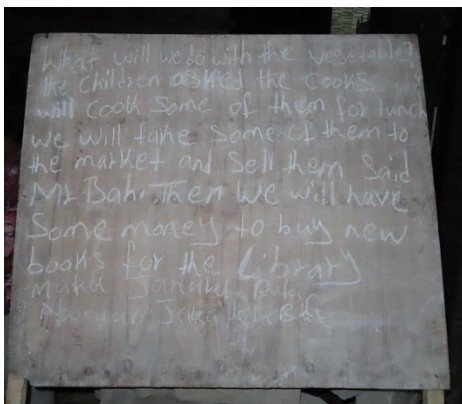 What will we do with the vegetables
the children asked the cooks
will cook some of them for lunch
we will take some of them to
the market and sell them said
Mr Bah. Then we will have
some money to buy new
books for the Library